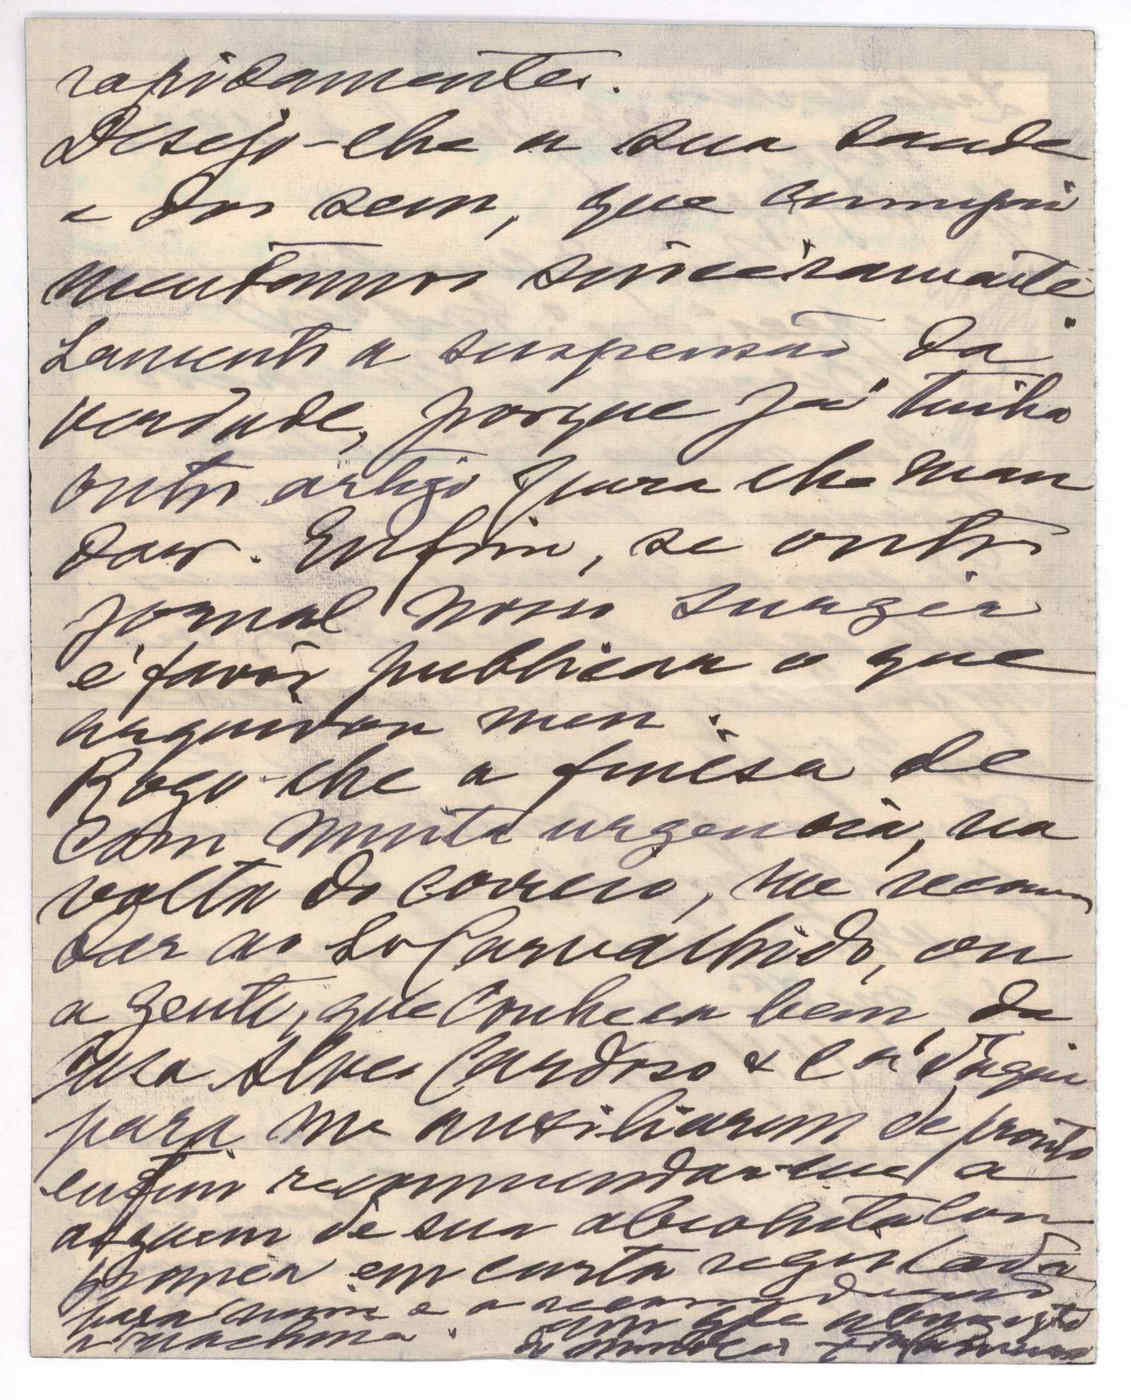 rapidamente.
Desejo-lhe a sua saude
e dos seus, que cumpri
mentamos sinceiramente
Lamento a suspensão da
verdade, porque já tinha
outro artigo para lhe man
dar. Enfim, se outro
jornal novo surgir
é favôr publicar o que
arquivou meu.
Rogo-lhe a finêsa de
com muita urgencia, na
volta do correio, me recomen
dar ao Sr Carvalhido, ou
a gente, que conheça bem da
Casa Alves Cardoso & Cª d'aqui
para me auxiliarem de pronto
enfim recomendar-me a
alguem de sua absoluta con
fiança em carta registada
para mim e a recomendando
a machina. um grde abraço
do